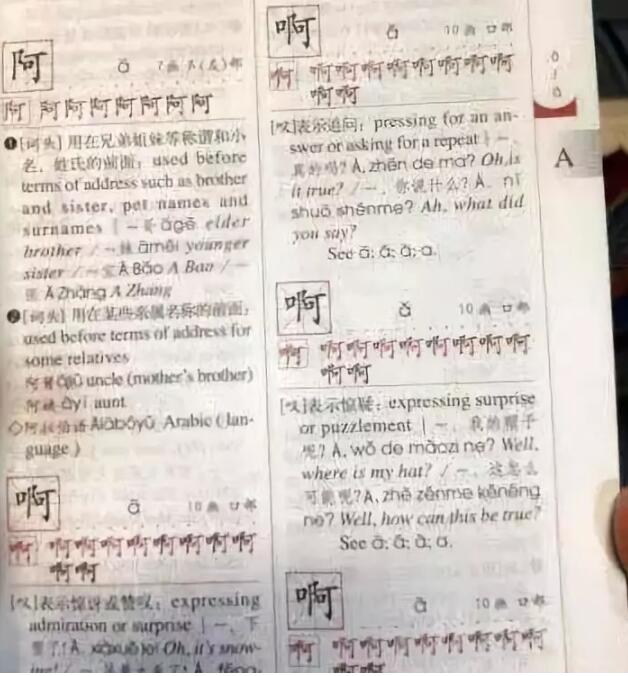 阿 ā 7画 阝(左)部
阿 阿阿阿阿阿阿阿
❶[词头] 用在兄弟姐妹等称谓和小
名、姓氏的前面：used before
terms of address such as brother
and sister, pet names and
surnames | ～哥 āgē elder
brother / ～妹 āmèi younger
sister / ～宝 Ā Bǎo A Bao / ～
张 Ā Zhāng A Zhang
❷[词头] 用在某些亲属名称的前面：
used before terms of address for
some relatives
阿舅 ājiù uncle (mother's brother)
阿姨 āyí aunt
◇阿拉伯语 Ālābóyǔ Arabic (lan-
guage)
啊 ā 10画 口部
啊 啊啊啊啊啊啊啊啊
啊啊
[叹]表示惊讶或赞叹：expressing
admiration or surprise | ～，下
雪了！Ā, xiàxuě le! Oh, it's snow-
啊 á 10画 口部
啊 啊啊啊啊啊啊啊啊
啊啊
[叹]表示追问：pressing for an an-
swer or asking for a repeat | ～，
真的吗？Á, zhēn de ma? Oh, is
it true? / ～，你说什么？Á, nǐ
shuō shénme? Ah, what did
you say?
See ā; ǎ; à; ·a.
啊 ǎ 10画 口部
啊 啊啊啊啊啊啊啊啊
啊啊
[叹]表示惊疑：expressing surprise
or puzzlement | ～，我的帽子
呢？Ǎ, wǒ de màozi ne? Well,
where is my hat? / ～，这怎么
可能呢？Ǎ, zhè zěnme kěnéng
ne? Well, how can this be true?
See ā; á; à; ·a.
啊 à 10画 口部
啊 啊啊啊啊啊啊啊啊
啊啊
A